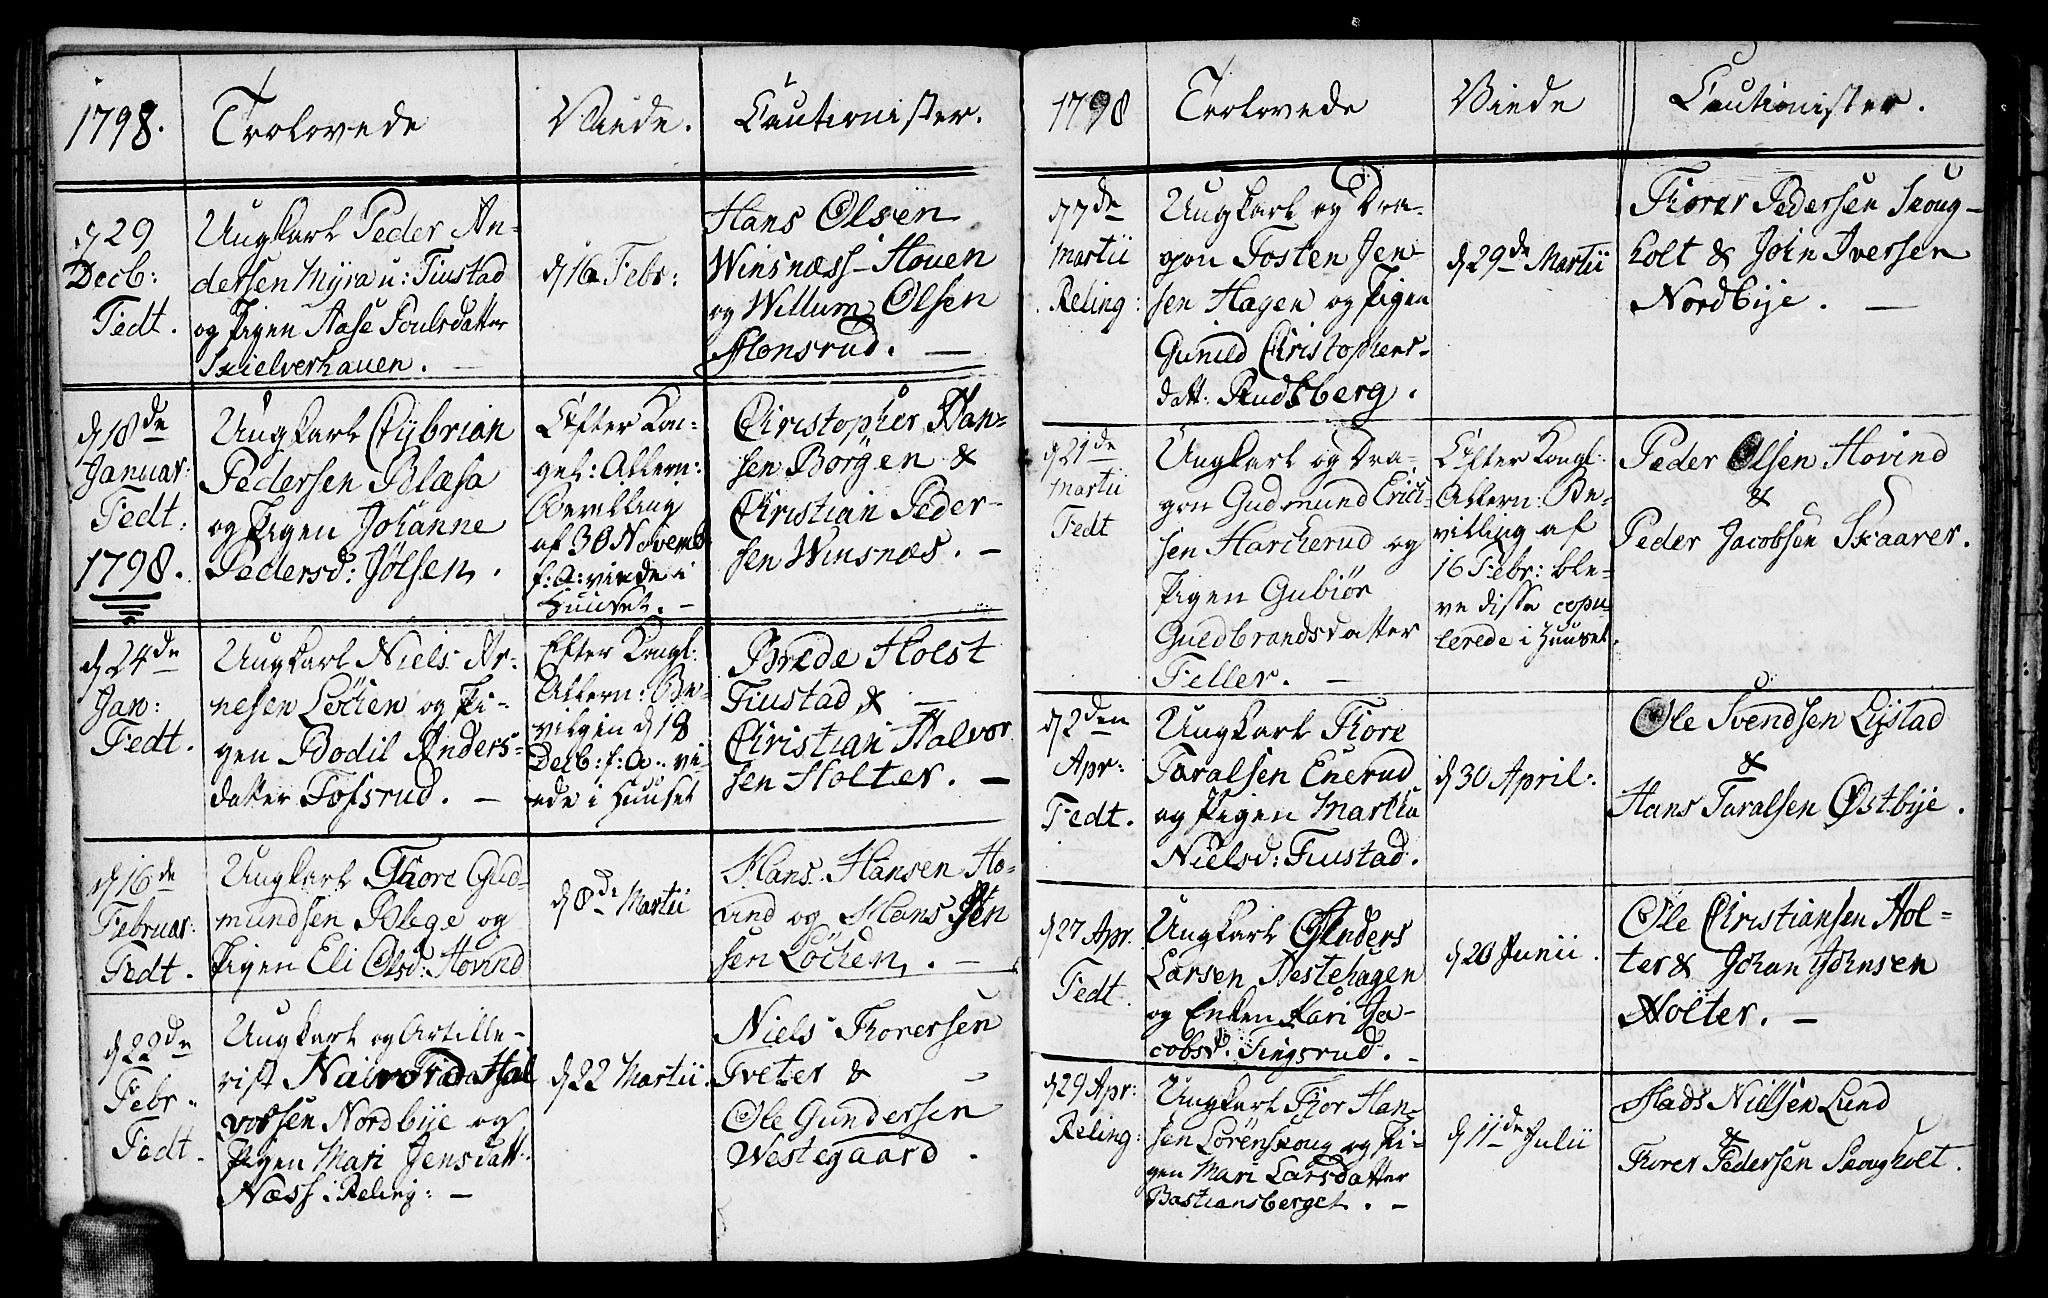 1798.
Trolovede
Viede.
Cautionister.
d 29
Decb:
Fedt.
Ungkarl Peder An-
dersen Myra u: Tiustad
og Pigen Aase Poulsdatter
Skielverhauen.
d 16 Febr:
Hans Olsen
Winsnæss-Houen
og Willum Olsen
Monsrud.
d 18de
Januar:
Fedt:
1798.
Ungkarl Cybrian
Pedersen Blæsa
og Pigen Johanne
Pedersd: Jølsen.
Efter Kon-
gel: Allern:
Bevilling
af 30 Novemb
f: A: viede i
Huuset.
Christopher Han-
sen Borgen &
Christian Peder-
sen Winsnæs.
d 24de
Jan:
Fedt.
Ungkarl Niels Ar-
nesen Løcken og Pi-
gen Bodil Anders-
datter Fossrud.
Efter Kongl:
Allern: Be-
vilgin d 18
Decb: f: A: vi
ede i Huuset
Brede Holst
Tiustad &
Christian Halvor
sen Holter.
d 16de
Februar:
Fedt.
Ungkarl Thore Gud-
mundsen Blege og
Pigen Eli Olsd: Hovind
d 8de Martii
Hans Hansen Ho-
vind og Hans Jen
sen Løcken.
d 22de
Febr.
Fedt.
Ungkarl og Artille-
rist Halvor Hal
vorsen Nordbye og
Pigen Mari Jensdatt:
Næss i Reling:
d 22 Martii.
Niels Thoresen
Tveter &
Ole Gundersen
Westegaard.
1798
Trolovede
Viede
Cautionister.
d 7de
Martii
Reling:
Ungkarl og Dra-
gon Tosten Jen-
sen Hagen og Pigen
Gunild Christophers-
datt: Rudsberg.
d 29de Martii
Thorer Pedersen Skoug-
holt & John Iversen
Nordbye.
d 21de
Martii
Fedt
Ungkarl og Dra-
gon Gudmund Erich-
sen Harcherud og
Pigen Gubiør
Guldbrandsdatter
Feller.
Efter Kongl:
Allern: Be-
villing af
16 Febr: ble-
ve disse copu
lerede i Huuset.
Peder Olsen Hovind
&
Peder Jacobsen Skaarer.
d 2den
Apr:
Fedt.
Ungkarl Tiore
Taralsen Enerud
og Pigen Martha
Nielsd: Tiustad.
d 30 April:
Ole Svendsen Lystad
&
Hans Taralsen Østbye.
d 27 Apr.
Fedt.
Ungkarl Anders
Larsen Nestehagen
og Enken Kari Ja-
cobsd: Tingsrud.
d 20 Junii.
Ole Christiansen Hol-
ter & Johan Johnsen
Holter.
d 29 Apr:
Reling:
Ungkarl Thor Han-
sen Lørenskoug og Pi-
gen Mari Larsdatter
Bastiansberget.
d 11de Julii
Mads Nielsen Lund
&
Thorer Pedersen Skougholt.